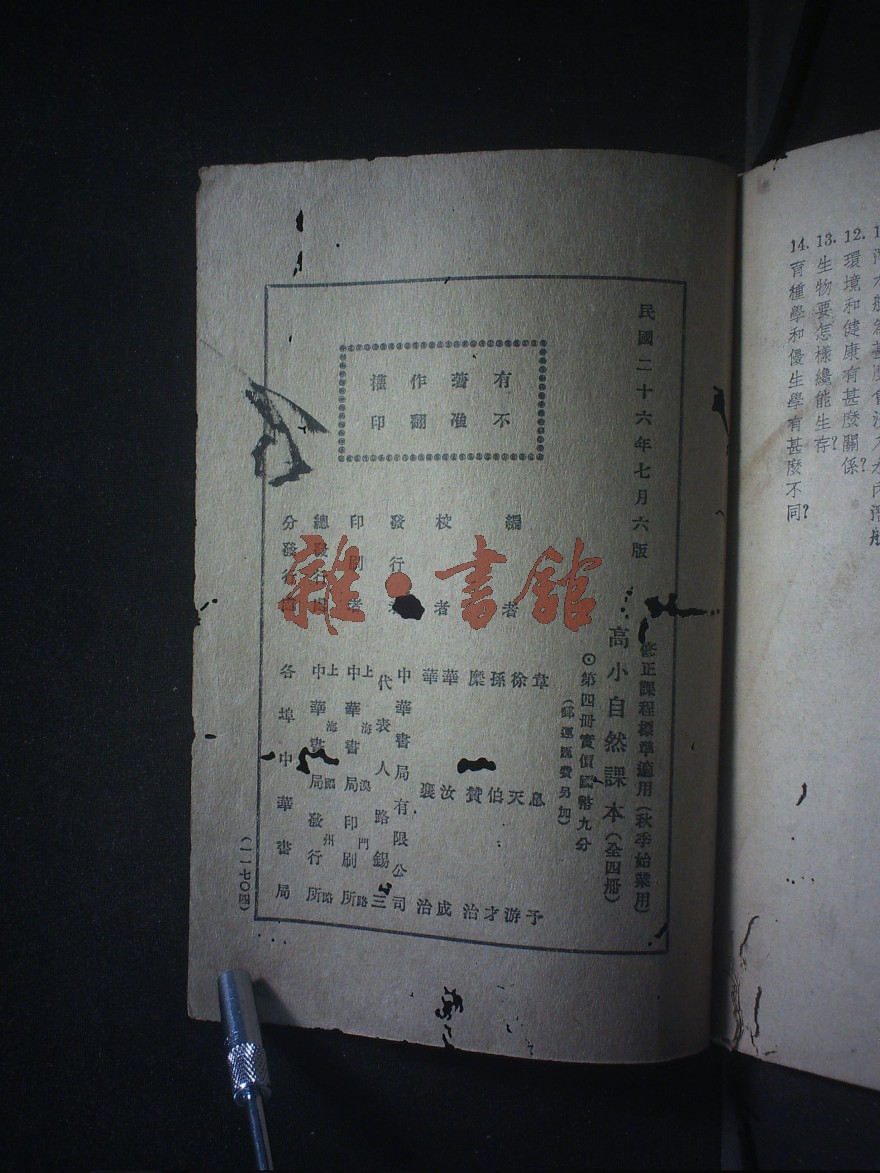 12. 環境和健康有甚麼關係?
13. 生物要怎樣纔能生存?
14. 育種學和優生學有甚麼不同?
民國二十六年七月六版
修正課程標準適用(秋季始業用)
高小自然課本(全四册)
⊙第四册實價國幣九分
(郵運匯費另加)
有著作權
不准翻印
編者
韋息予
徐天游
孫伯才
糜贊治
校者
華汝成
華襄治
發行者
中華書局有限公司
代表人路錫三
印刷者
上海澳門路
中華書局印刷所
總發行處
上海福州路
中華書局發行所
分發行處
各埠中華書局
(一一七〇四)
雜·書館